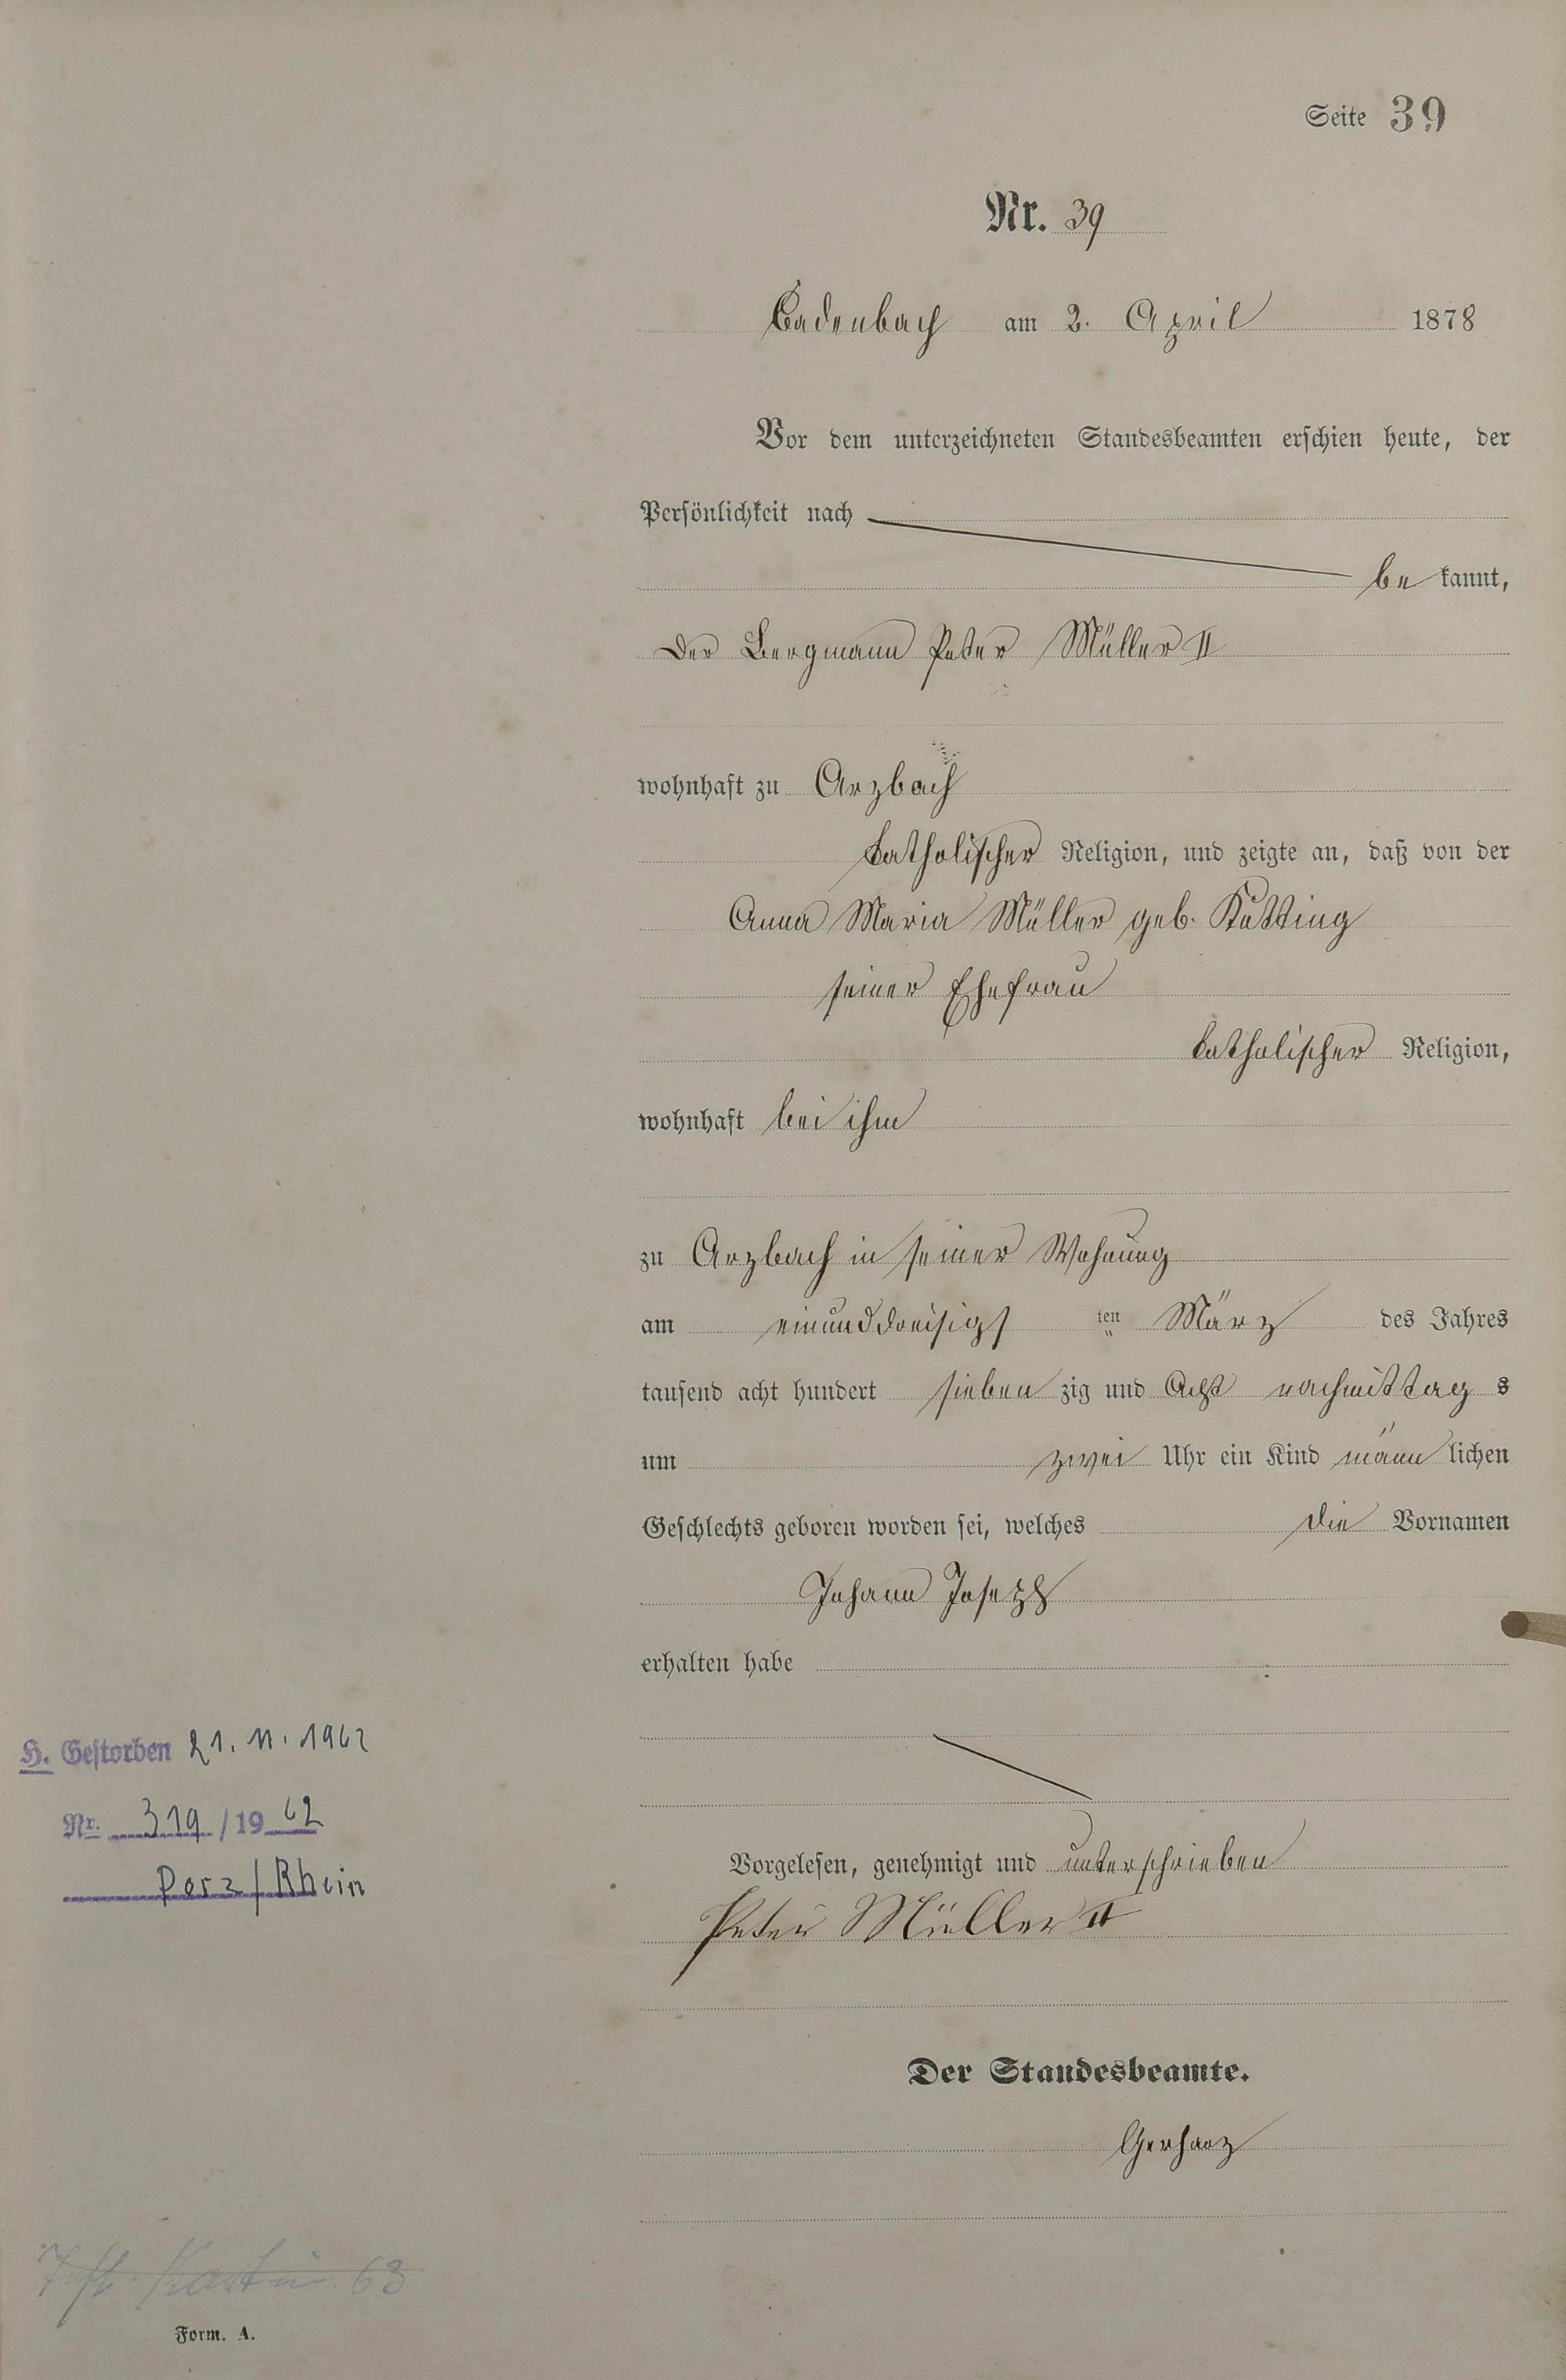 Seite 39
Nr. 39
Cadenbach am 2. April 1878
Vor dem unterzeichneten Standesbeamten erschien heute, der
Persönlichkeit nach
be kannt,
der Bergmann Peter Müller II
wohnhaft zu Arzbach
katholischer Religion, und zeigte an, daß von der
Anna Maria Müller geb. Kütting
seiner Ehefrau
katholischer Religion,
wohnhaft bei ihm
zu Arzbach in seiner Wohnung
am einunddreisigs ten März des Jahres
tausend acht hundert sieben zig und acht nachmittag s
um zwei Uhr ein Kind männ lichen
Geschlechts geboren worden sei, welches die Vornamen
Johann Joseph
erhalten habe
H. Gestorben 21. 11. 1962
Nr. 319 / 19 62
Porz / Rhein
Vorgelesen, genehmigt und unterschrieben
Peter Müller II
Der Standesbeamte.
Gerharz
63
Form. A.